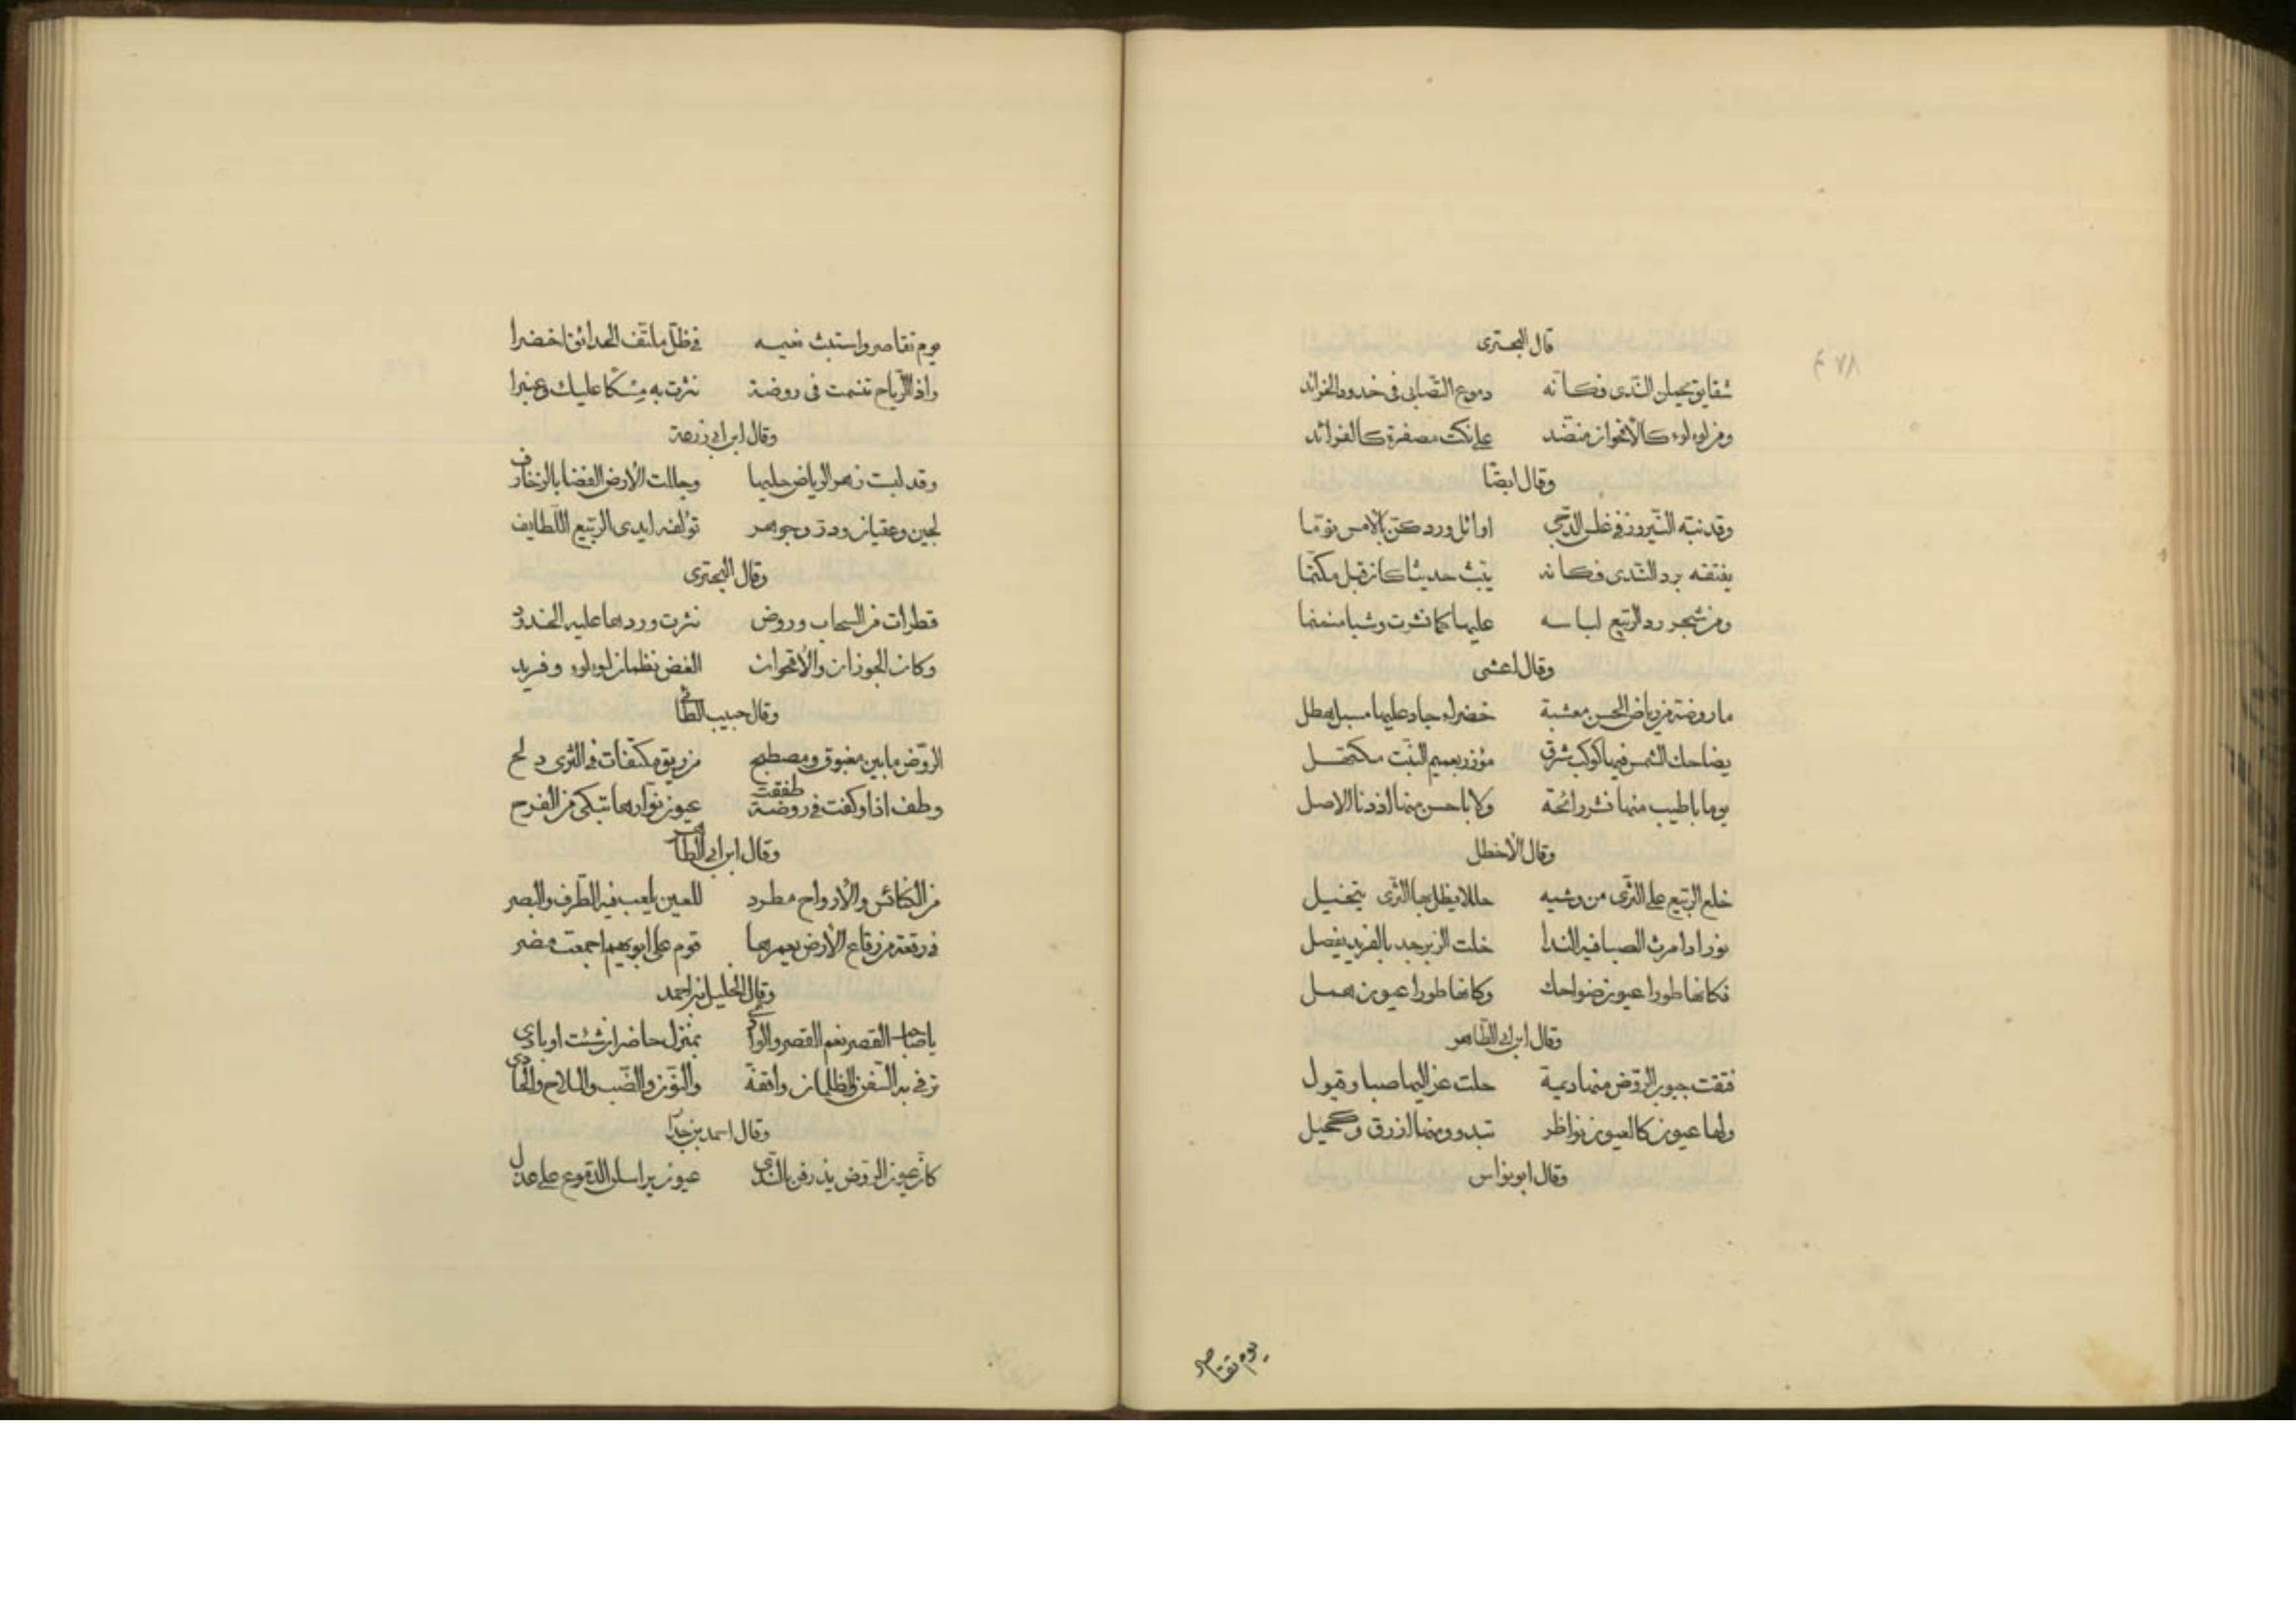 قال البحترى
شقايق يحملن الندى فكانه دموع التصابى فى خدود الخرائد
ومن لولوء كالأقحوان منضد على نكت مصفرة كالفرائد
وقال ايضًا
وقد نبه النيروز فى غلس الدجى اوائل ورد كن بالامس نوّما
يفتقه برد الندى فكانه يبث حديثا كان قبل مكتما
ومن شجر رد الربيع لباسه عليها كما نشرت وشيا منمنما
وقال اعشى
ما روضة من رياض الحسن معشبة خضراء جاد عليها مسبل هطل
يضاحك الشمس فيها كوكب شرق مؤزر بعميم النبت مكتهل
يوما باطيب منها نشر رائحة ولا باحسن منها اذ دنا الاصل
وقال الأخطل
خلع الربيع على الثرى من وشيه حللا يظل بها الثرى يتخيل
نورا اذا مرت الصبا فيه الندا خلت الزبرجد بالفريد يفصل
فكانها طورا عيون ضواحك وكانها طورا عيون همل
وقال ابن ابى الطاهر
فتقت جيوب الروض منها ديمة حلت عزاليها صبا وقبول
ولها عيون كالعيون نواظر تبدو ومنها ازرق وكحيل
وقال ابو نواس
يوم تقاصر
يوم تقاصر واستبث نعيمه فى ظل ملتف الحدائق اخضرا
واذا الرياح تنسمت فى روضة نثرت به مسكا عليك وعنبرا
وقال ابن ابى زرعة
وقد لبست زهر الرياض حليها وجللت الأرض الفضا بالزخارف
لجين وعقيان ودر وجوهر تؤلفه ايدى الربيع اللطايف
وقال البحترى
قطرات من السحاب وروض نثرت وردها عليه الخدود
وكان الجوزان والأقحوان الغض نظمان لولوء وفريد
وقال حبيب الطائى
الروض ما بين مغبوق ومصطبح من ريق مكتفات فى الثرى دلح
وطف اذا وكفت فى روضة طفقت عيون نوارها تبكى من الفرح
وقال ابن ابى الطاهر
للعين يلعب فيه الطرف والبصر
فى رقعة من رقاع الأرض يعمرها قوم على ابويهم اجمعت مضر
وقال الخليل بن احمد
يا صاحب القصر نعم القصر والوادى بمنزل حاضر ان شئت او بادى
ترفى به السفن والظلمان واقفة والنون والضب والملاح والحادى
وقال احمد بن
كأن عيون الروض يذرفن بالندى عيون يراسلن الدموع على عذل